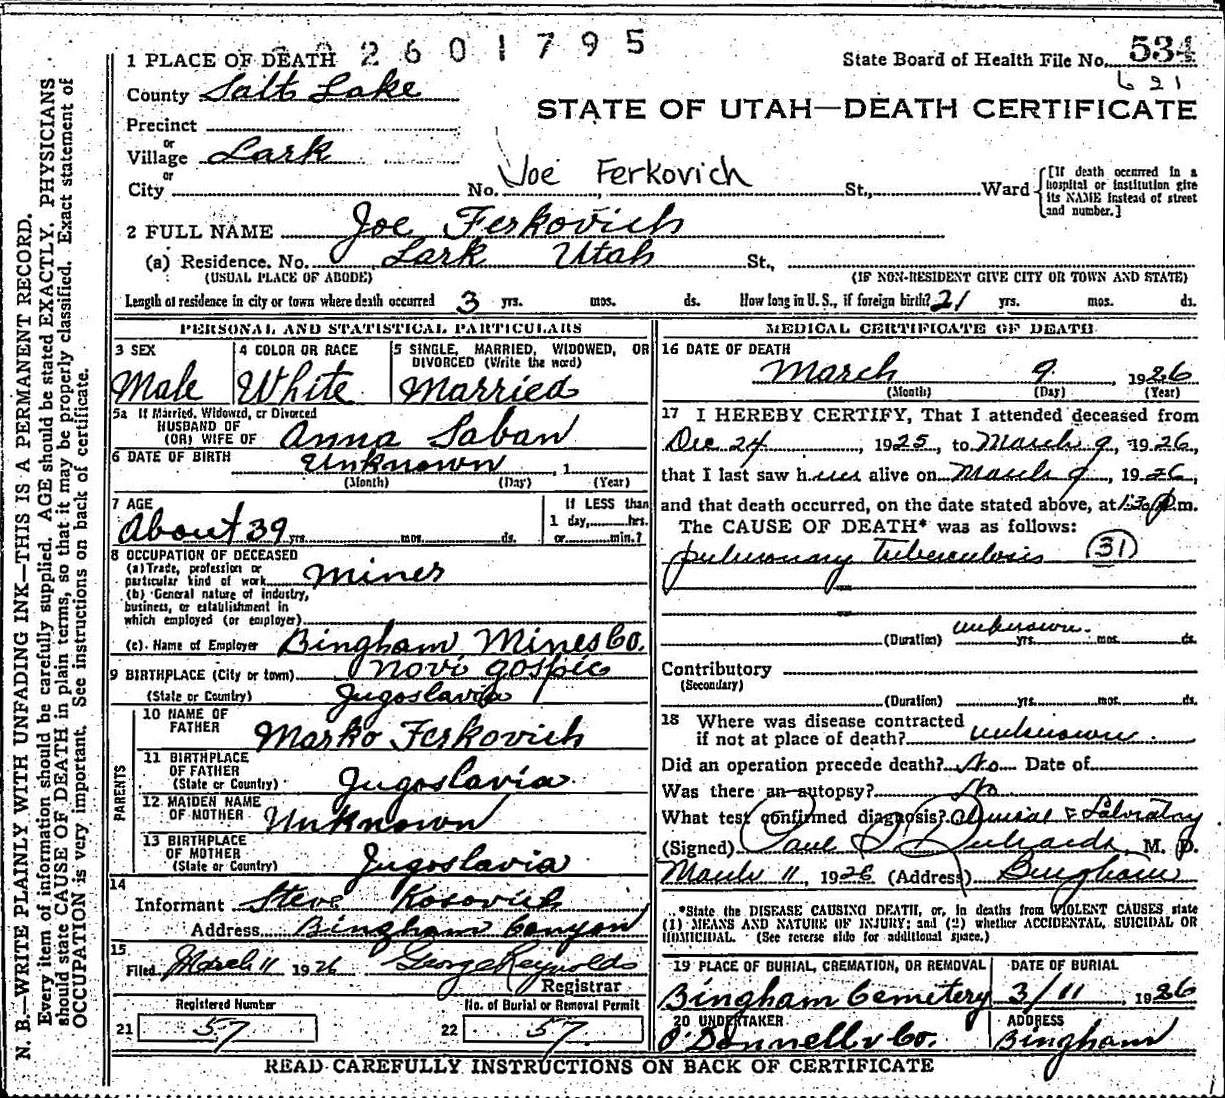 2601795
1 PLACE OF DEATH
State Board of Health File No. 534
621
County Salt Lake
STATE OF UTAH—DEATH CERTIFICATE
Precinct
or
Village Lark
or
City No. Joe Ferkovich St., Ward
[If death occurred in a hospital or institution give its NAME instead of street and number.]
2 FULL NAME Joe Ferkovich
(a) Residence. No. Lark Utah St.,
(USUAL PLACE OF ABODE) (IF NON-RESIDENT GIVE CITY OR TOWN AND STATE)
Length of residence in city or town where death occurred 3 yrs. mos. ds. How long in U. S., if foreign birth? 21 yrs. mos. ds.
PERSONAL AND STATISTICAL PARTICULARS
3 SEX
Male
4 COLOR OR RACE
White
5 SINGLE, MARRIED, WIDOWED, OR
DIVORCED (Write the word)
Married
5a If Married, Widowed, or Divorced
HUSBAND OF
(OR) WIFE OF Anna Saban
6 DATE OF BIRTH Unknown, 1
(Month) (Day) (Year)
7 AGE
About 39 yrs. mos. ds.
If LESS than
1 day, hrs.
or min.?
8 OCCUPATION OF DECEASED
(a) Trade, profession or
particular kind of work Miner
(b) General nature of industry,
business, or establishment in
which employed (or employer)
(c) Name of Employer Bingham Mines Co.
9 BIRTHPLACE (City or town) Novi Gospic
(State or Country) Jugoslavia
PARENTS
10 NAME OF
FATHER Marko Ferkovich
11 BIRTHPLACE
OF FATHER
(State or Country) Jugoslavia
12 MAIDEN NAME
OF MOTHER Unknown
13 BIRTHPLACE
OF MOTHER
(State or Country) Jugoslavia
14
Informant Steve Kosovich
Address Bingham Canyon
15
Filed March 11 1926 George Reynolds
Registrar
Registered Number
21 57
No. of Burial or Removal Permit
22 57
MEDICAL CERTIFICATE OF DEATH
16 DATE OF DEATH
March 9, 1926
(Month) (Day) (Year)
17 I HEREBY CERTIFY, That I attended deceased from
Dec 24, 1925, to March 9, 1926,
that I last saw him alive on March 9, 1926,
and that death occurred, on the date stated above, at 1:30 p.m.
The CAUSE OF DEATH* was as follows:
pulmonary Tuberculosis (31)
(Duration) unknown. yrs. mos. ds.
Contributory
(Secondary)
(Duration) yrs. mos. ds.
18 Where was disease contracted
if not at place of death? unknown.
Did an operation precede death? No Date of
Was there an autopsy? No
What test confirmed diagnosis? Clinical & Laboratory
(Signed) Paul S. Richards, M. D.
March 11, 1926 (Address) Bingham
*State the DISEASE CAUSING DEATH, or, in deaths from VIOLENT CAUSES state
(1) MEANS AND NATURE OF INJURY; and (2) whether ACCIDENTAL, SUICIDAL OR
HOMICIDAL. (See reverse side for additional space.)
19 PLACE OF BURIAL, CREMATION, OR REMOVAL
Bingham Cemetery
DATE OF BURIAL
3/11, 1926
20 UNDERTAKER
O'Donnell & Co.
ADDRESS
Bingham
READ CAREFULLY INSTRUCTIONS ON BACK OF CERTIFICATE
N. B.—WRITE PLAINLY WITH UNFADING INK—THIS IS A PERMANENT RECORD.
Every item of information should be carefully supplied. AGE should be stated EXACTLY. PHYSICIANS
should state CAUSE OF DEATH in plain terms, so that it may be properly classified. Exact statement of
OCCUPATION is very important. See instructions on back of certificate.